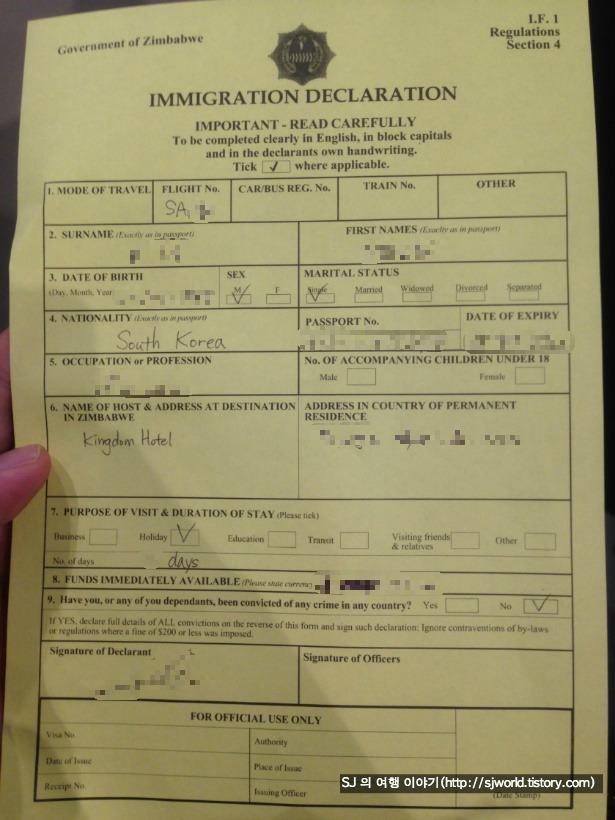 Government of Zimbabwe
I.F. 1
Regulations
Section 4
IMMIGRATION DECLARATION
IMPORTANT - READ CAREFULLY
To be completed clearly in English, in block capitals
and in the declarants own handwriting.
Tick ✓ where applicable.
1. MODE OF TRAVEL FLIGHT No. CAR/BUS REG. No. TRAIN No. OTHER
SA
2. SURNAME (Exactly as in passport) FIRST NAMES (Exactly as in passport)
3. DATE OF BIRTH SEX MARITAL STATUS
(Day, Month, Year M F Single Married Widowed Divorced Separated
4. NATIONALITY (Exactly as in passport) PASSPORT No. DATE OF EXPIRY
South Korea
5. OCCUPATION or PROFESSION No. OF ACCOMPANYING CHILDREN UNDER 18
Male Female
6. NAME OF HOST & ADDRESS AT DESTINATION IN ZIMBABWE ADDRESS IN COUNTRY OF PERMANENT RESIDENCE
Kingdom Hotel
7. PURPOSE OF VISIT & DURATION OF STAY (Please tick)
Business Holiday ✓ Education Transit Visiting friends & relatives Other
No. of days days
8. FUNDS IMMEDIATELY AVAILABLE (Please state currency
9. Have you, or any of you dependants, been convicted of any crime in any country? Yes No ✓
If YES, declare full details of ALL convictions on the reverse of this form and sign such declaration: Ignore contraventions of by-laws
or regulations where a fine of $200 or less was imposed.
Signature of Declarant Signature of Officers
FOR OFFICIAL USE ONLY
Visa No. Authority
Date of Issue Place of Issue
Receipt No. Issuing Officer (Date Stamp)
SJ 의 여행 이야기(http://sjworld.tistory.com)